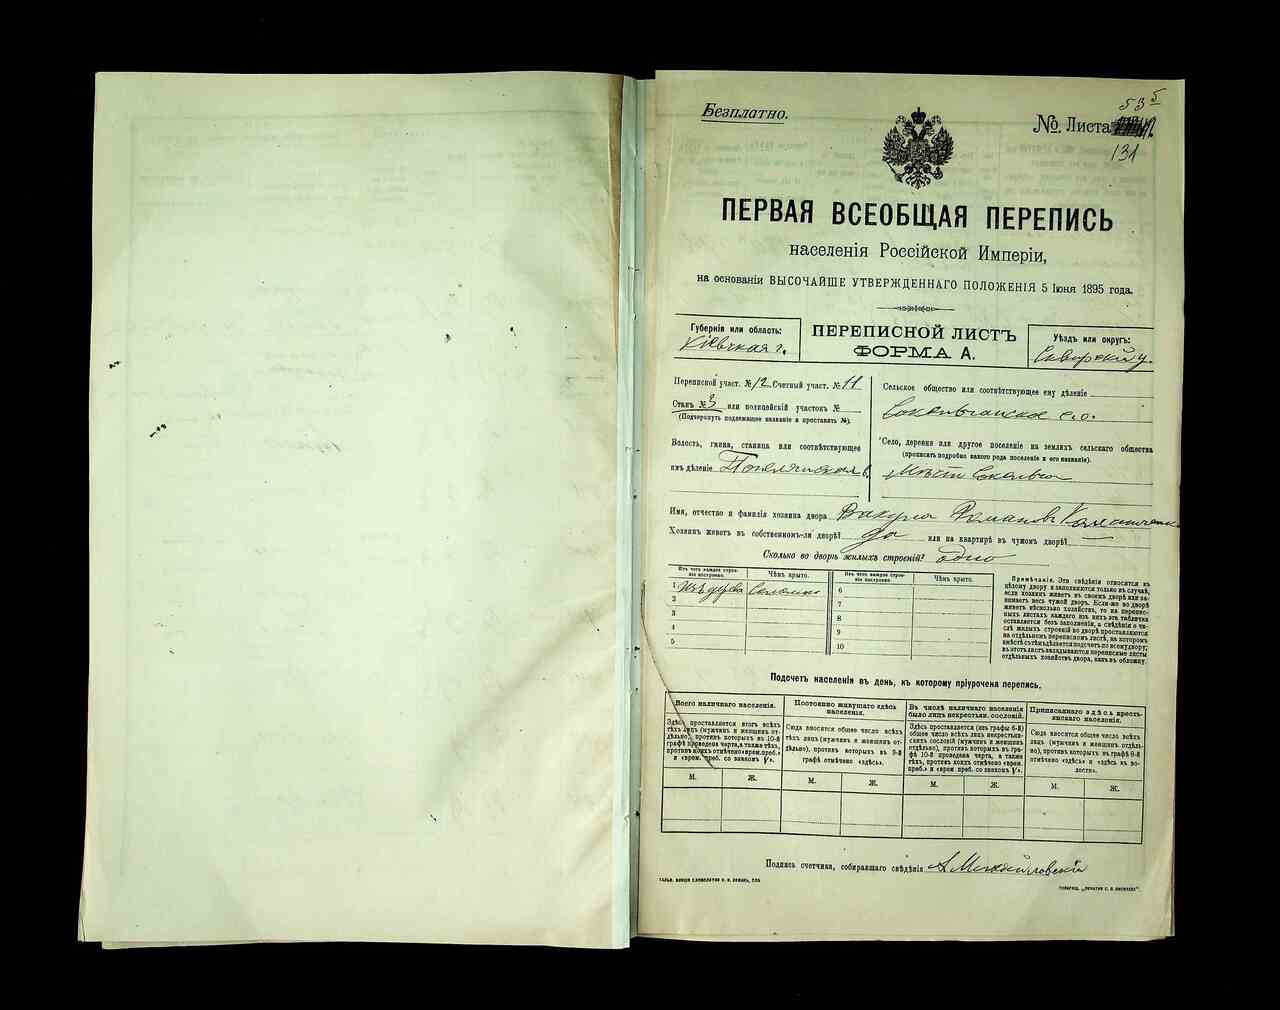 Безплатно.
53 5
№. Листа
131
ПЕРВАЯ ВСЕОБЩАЯ ПЕРЕПИСЬ
населенія Россійской Имперіи,
на основаніи ВЫСОЧАЙШЕ УТВЕРЖДЕННАГО ПОЛОЖЕНІЯ 5 Іюня 1895 года.
Губернія или область:
Кіевская г.
ПЕРЕПИСНОЙ ЛИСТЪ
ФОРМА А.
Уѣздъ или округъ:
Сквирскій у.
Переписной участ. № 12 Счетный участ. № 11
Станъ № 3 или полицейскій участокъ №
(Подчеркнуть подлежащее названіе и проставить №).
Волость, гмина, станица или соотвѣтствующее
имъ дѣленіе
Сельское общество или соотвѣтствующее ему дѣленіе
с.о.
Село, деревня или другое поселеніе на земляхъ сельскаго общества
(прописать подробно какого рода поселеніе и его названіе).
Имя, отчество и фамилія хозяина двора Вакула Романовъ
Хозяинъ живетъ въ собственномъ-ли дворѣ? да или на квартирѣ въ чужомъ дворѣ? —
Сколько во дворѣ жилыхъ строеній? одно
Изъ чего каждое строе-
ніе построено.
Чѣмъ крыто.
1 Изъ дерева Соломою
2
3
4
5
Изъ чего каждое строе-
ніе построено.
Чѣмъ крыто.
6
7
8
9
10
Примѣчанія. Эта свѣдѣнія относятся къ
цѣлому двору и заполняются только въ случаѣ,
если хозяинъ живетъ въ своемъ дворѣ или за-
нимаетъ весь чужой дворъ. Если-же во дворѣ
живетъ нѣсколько хозяйствъ, то на перепис-
ныхъ листахъ каждаго изъ нихъ эта табличка
оставляется безъ заполненія, а свѣдѣнія о чи-
слѣ жилыхъ строеній во дворѣ проставляются
на отдѣльномъ переписномъ листѣ, на которомъ
вмѣстѣ съ тѣмъ дѣлается подсчетъ по всему двору;
въ этотъ листъ вкладываются переписные листы
отдѣльныхъ хозяйствъ двора, какъ въ обложку.
Подсчетъ населенія въ день, къ которому пріурочена перепись.
Всего наличнаго населенія.
Здѣсь проставляется итогъ всѣхъ
тѣхъ лицъ (мужчинъ и женщинъ от-
дѣльно), противъ которыхъ въ 10-й
графѣ проведена черта, а также тѣхъ,
противъ коихъ отмѣчено «врем. преб.»
и «врем. преб. со знакомъ V».
М. Ж.
Постоянно живущаго здѣсь
населенія.
Сюда вносится общее число всѣхъ
тѣхъ лицъ (мужчинъ и женщинъ от-
дѣльно), противъ которыхъ въ 9-й
графѣ отмѣчено «здѣсь».
М. Ж.
Въ числѣ наличнаго населенія
было лицъ некрестьян. сословій.
Здѣсь проставляется (изъ графы 6-й)
общее число всѣхъ лицъ некрестьян-
скихъ сословій (мужчинъ и женщинъ
отдѣльно), противъ которыхъ въ гра-
фѣ 10-й проведена черта, а также
тѣхъ, противъ коихъ отмѣчено «врем.
преб.» и «врем. преб. со знакомъ V».
М. Ж.
Приписаннаго здѣсь кресть-
янскаго населенія.
Сюда вносится общее число всѣхъ
лицъ (мужчинъ и женщинъ отдѣль-
но), противъ которыхъ въ графѣ 8-й
отмѣчено «здѣсь» и «здѣсь въ во-
лости».
М. Ж.
Подпись счетчика, собиравшаго свѣдѣнія